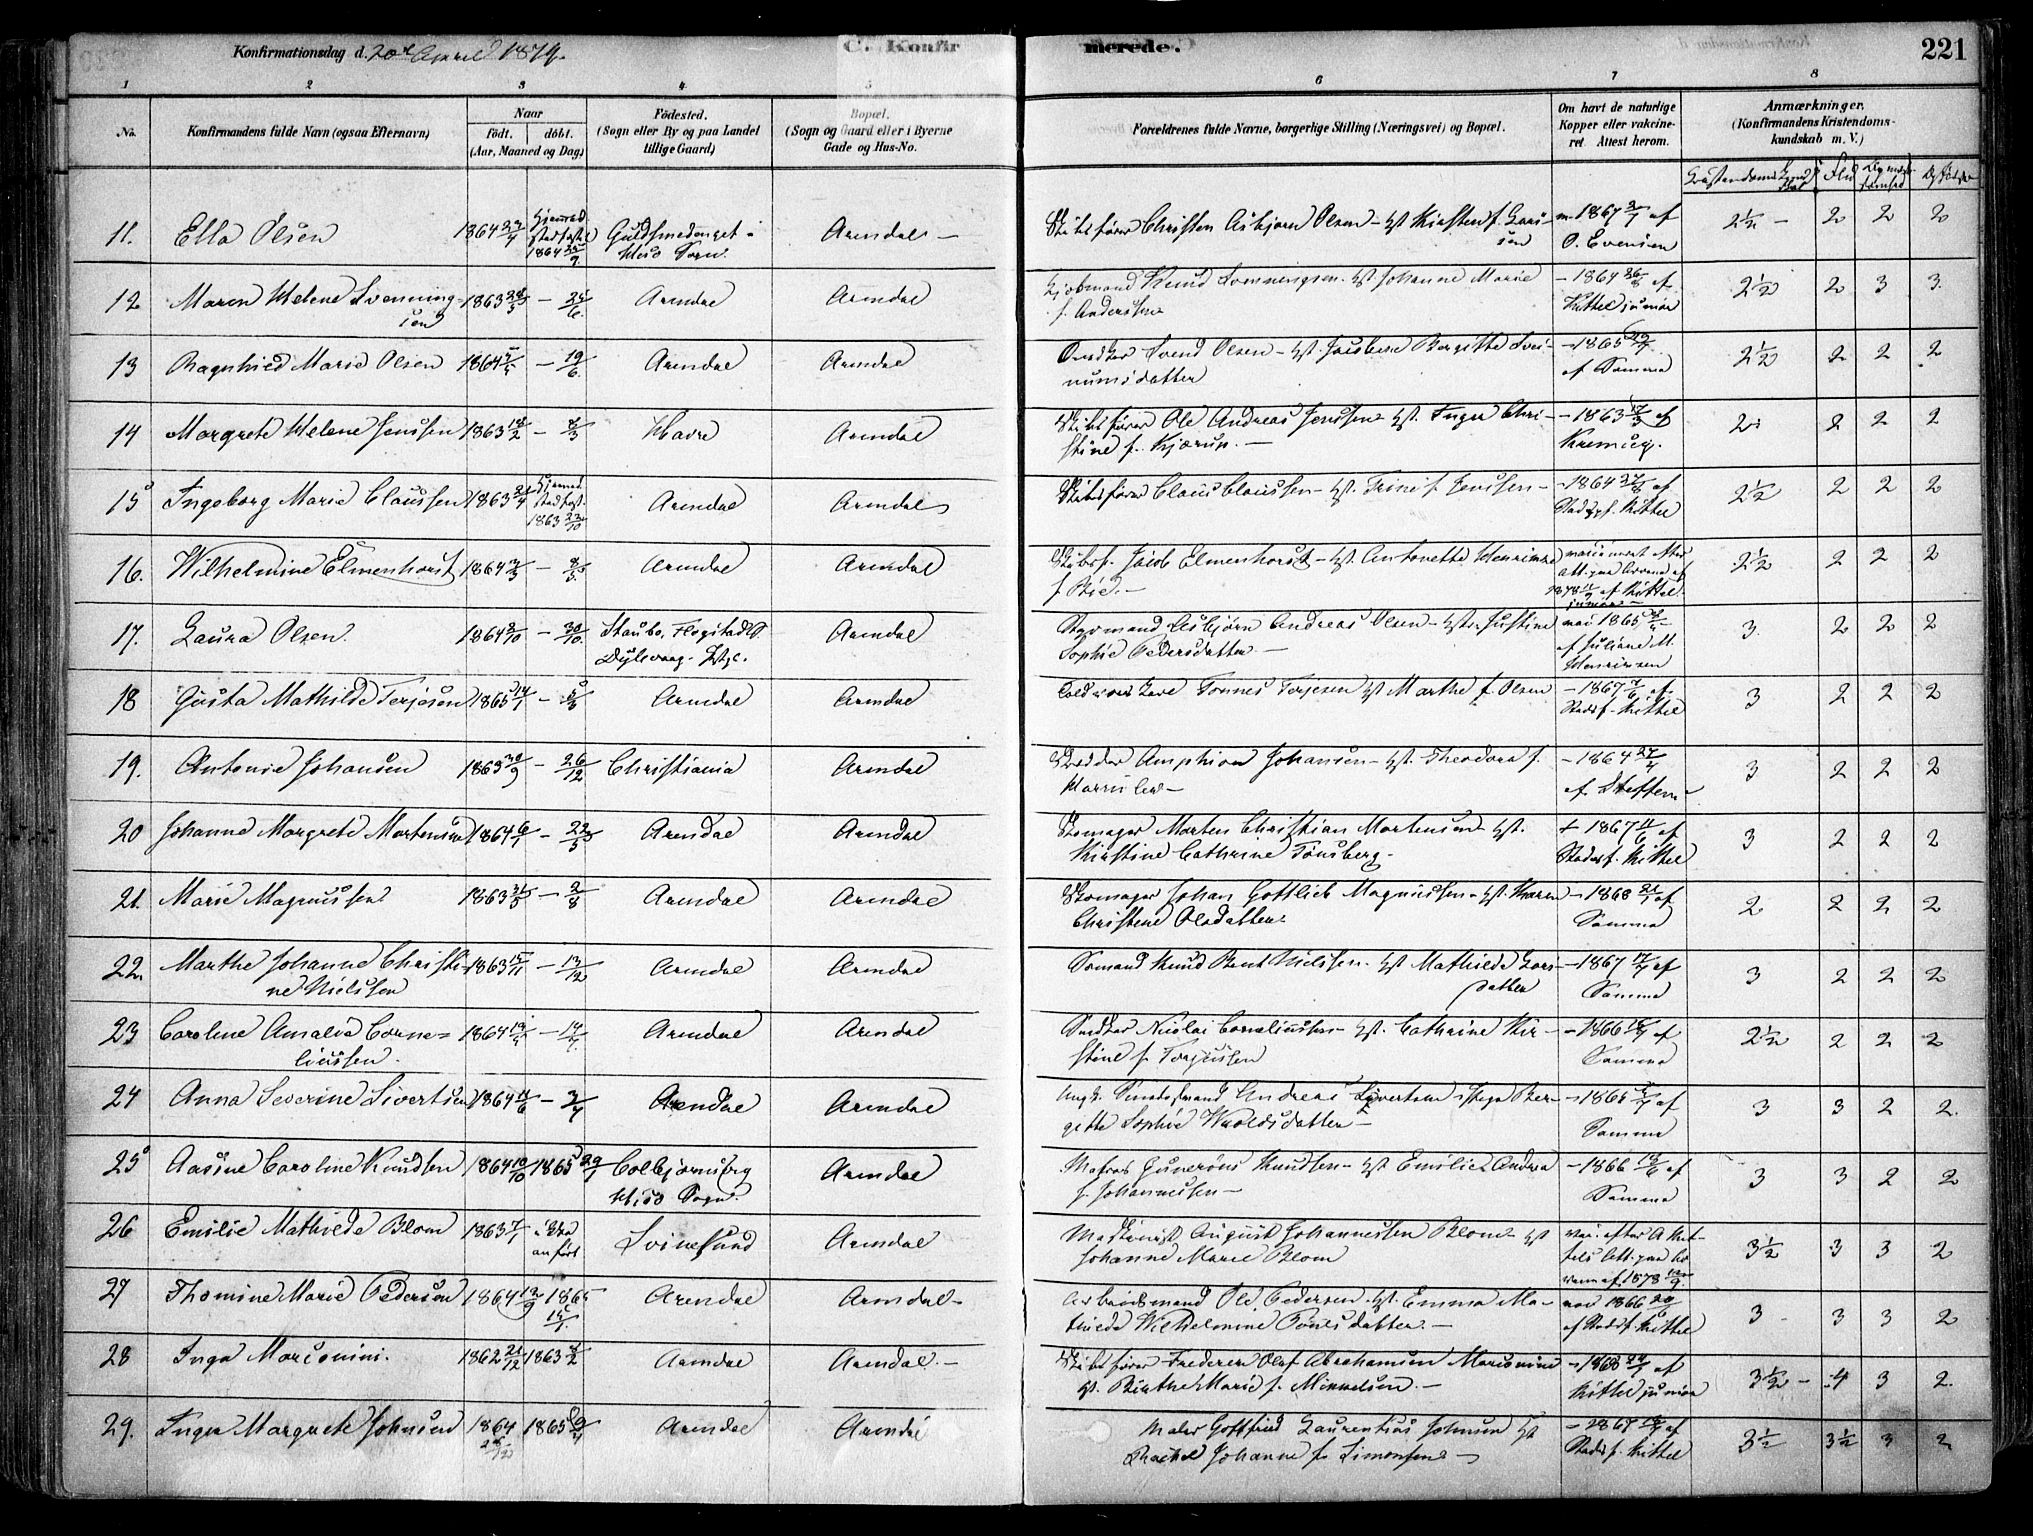 Konfirmationsdag d. 20de April 1879.
C. Konfirmerede.
221
1 2 3 4 5 6 7 8
No.
Konfirmandens fulde Navn (ogsaa Efternavn)
Naar
født. døbt.
(Aar, Maaned og Dag)
Fødested.
(Sogn eller By og paa Landet
tillige Gaard)
Bopæl.
(Sogn og Gaard eller i Byerne
Gade og Hus-No.
Forældrenes fulde Navne, borgerlige Stilling (Næringsvei) og Bopæl.
Om havt de naturlige
Kopper eller vakcine-
ret Attest herom.
Anmærkninger.
(Konfirmandens Kristendoms-
kundskab m. V.)
Flid
11. Ella Olsen 1864 Hisø Sogn. Arendal
Skibsfører Christen Asbjørn Olsen 1867 af O. Evensen 2½ 2 2 2
12 Maren Helene Svenningsen 1863 28/5 – 25/6 Arendal Arendal
Johanne Marie f. Anderssen – 1864 26/8 af Kittel junior 2½ 2 3 3
13 Ragnhild Marie Olsen 1864 – 19/6 Arendal Arendal
Svend Olsen – 1865 af Samme 2½ 2 2 2
14 Margrete Helene Jenssen 1863 18/2 – 8/3 Havre Arendal
Skibsfører Ole Andreas Jenssen – Hst. Inger Christine f. Kjærup. – 1863 17/3 af 2 2 2 2
15 Ingeborg Marie Claussen 1863 Hjemmed. stadfæst. 1863 23/10 Arendal Arendal
Skibsfører Claus Claussen – Hst. Trine f. Jenssen – 1864 af Stadsf. Kittel 2½ 2 2 2
16. Wilhelmine Elmenhorst 1864 – Arendal Arendal
Skibsf. Jacob Elmenhorst – Hst. Antonette Henrikke f. Bie. – af Kittel junior 2½ 2 2 2
17. Laura Olsen 1864 8/10 – 30/10 Staubo, Flosta S. Dybvaag Arendal
Asbjørn Andreas Olsen – Hst. Justine Sophie Pedersdatter – 1865 af Juliane M. Henriksen 3 2 2 2
18 Gusta Mathilde Terjesen 1865 14/1 – Arendal Arendal
Tønnes Terjesen Hst Marthe f. Olsen – 1867 7/6 af Stadsf. Kittel 3 2 2 2
19. Antonie Johansen 1863 30/9 – 26/12 Christiania Arendal
Amphion Johansen – Hst. Theodora f. – 1864 27/4 af Steffens 3 2 2 2
20 Johanne Margrete Mortensen 1864 6/1 – 22/5 Arendal Arendal
Skomager Morten Christian Mortensen – Hst. Kirstine Cathrine Tønsberg – 1867 11/6 af Stadsf. Kittel 3 2 2 2
21. Marie Magnussen 1863 31/5 – 2/8 Arendal Arendal
Skomager Johan Gottlieb Magnussen – Hst. Karen Christine Olsdatter – 1868 21/1 af Samme 2 2 2 2
22. Marthe Johanne Christine Nielssen 1863 15/11 – 13/12 Arendal Arendal
Sømand Knud Bent Nielssen – Hst Mathilde Larsdatter – 1867 17/7 af Samme 3 2 2 2
23 Caroline Amalia Corneliussen. 1864 – Arendal Arendal
Nicolai Corneliussen – Hst. Cathrine Kirstine f. Torjussen – 1866 af Samme 2½ 2 2 2
24 Anna Severine Sivertsen 1864 11/6 – 3/7 Arendal Arendal
Andreas Sivertsen – Birgitte Sophie – 1865 af Samme 3 3 2 2.
25 Aasine Caroline Knudsen 1864 10/10 1865 29/1 Colbjørnsberg Hisø Sogn. Arendal
Matros Knudsen – Hst Emilie Andrea f. Johannesen – 1866 13/6 af Samme 3 3 2 2
26 Emilie Mathilde Blom 1863 7/1 ikke anført Svinesund Arendal
Maskinist August Johannessen Blom – Hst Johanne Marie Blom 1878 12/9 3½ 3 3 2
27 Thomine Marie Pedersen 1864 12/9 1865 15/1. Arendal Arendal –
Arbeidsmand Ole Pedersen – Hst. Emma Mathilde Wilhelmine Tønesdatter. – 1866 20/6 af Stadsf. Kittel 3 3 3 2
28 Inga Marconini. 1862 21/12 1863 8/2 Arendal Arendal. –
Skibsfører Frederik Olaf Abrahamsen Marconini Hst. Birthe Marie f. Mikkelsen. – 1868 24/1 af Kittel junior 3½ – 4 3 2
29. Inger Margrete Johnsen 1864 1865 Arendal Arendal
Maler Gottfried Laurentius Johnsen Hst Rachel Johanne f. Simonsen – – 1867 af Stadsf. Kittel 3½ 3½ 3 2